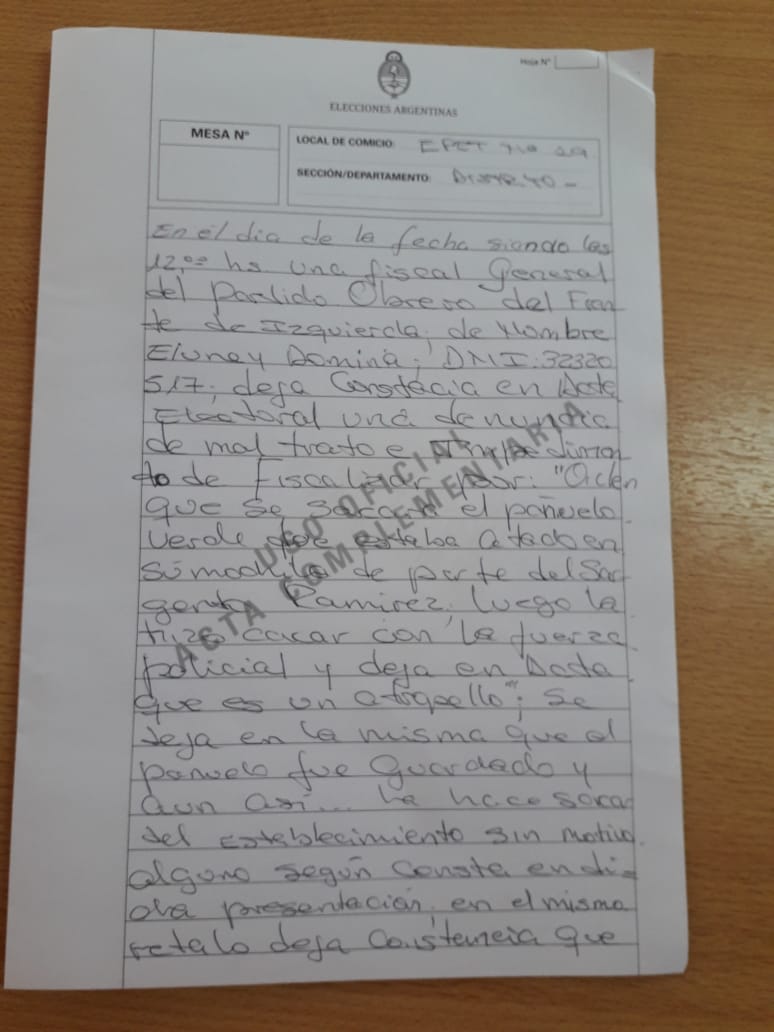 Hoja Nº
ELECCIONES ARGENTINAS
MESA Nº
LOCAL DE COMICIO: EPET
SECCIÓN/DEPARTAMENTO:
En el dia de la fecha siendo las
12,00 hs una fiscal General
del Partido Obrero del Fren
te de Izquierda, de Nombre
Eluney Domina, DNI: 32320
517; deja Constacia en Acta
Electoral una denuncia
de mal trato e Impedimen
to de Fiscalizar por: "Orden
que se sacara el pañuelo
verde que estaba atado en
su mochila de parte del Sar
gento Ramirez, luego la
hizo cacar con la fuerza
policial y deja en Acta
que es un atropello"; se
deja en la misma que el
panuelo fue Guardado y
aun asi... la hace sacar
del establecimiento sin motivo
alguno según Consta en di-
cha presentación, en el mismo
retalo deja Constancia que
USO OFICIAL
ACTA COMPLEMENTARIA